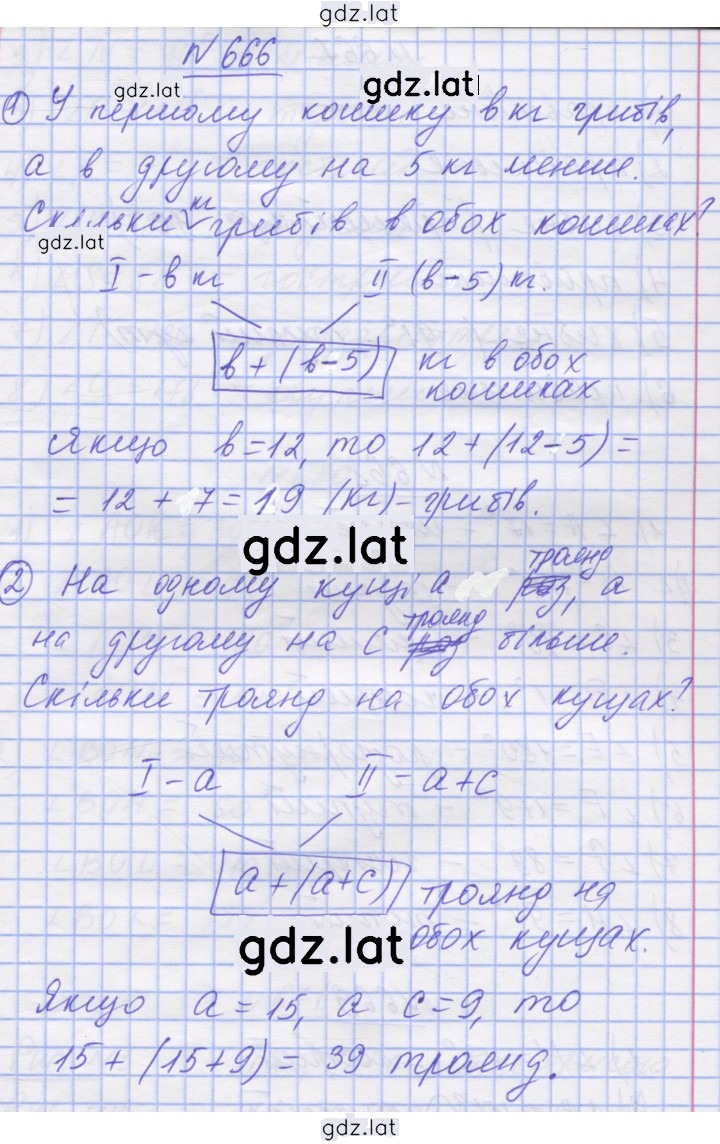 gdz.lat
N 666
gdz.lat gdz.lat
1 У першому кошику в кг грибів,
а в другому на 5 кг менше.
Скільки кг грибів в обох кошиках?
gdz.lat
I - в кг II (в-5) кг.
в + (в-5) кг в обох
кошиках
Якщо в=12, то 12 + (12-5) =
= 12 + 7 = 19 (кг) - грибів.
gdz.lat
2 На одному кущі а троянд, а
на другому на с троянд більше.
Скільки троянд на обох кущах?
I - а II - а+с
а + (а+с) троянд на
обох кущах.
gdz.lat
Якщо а = 15, а с=9, то
15 + (15+9) = 39 троянд.
gdz.lat